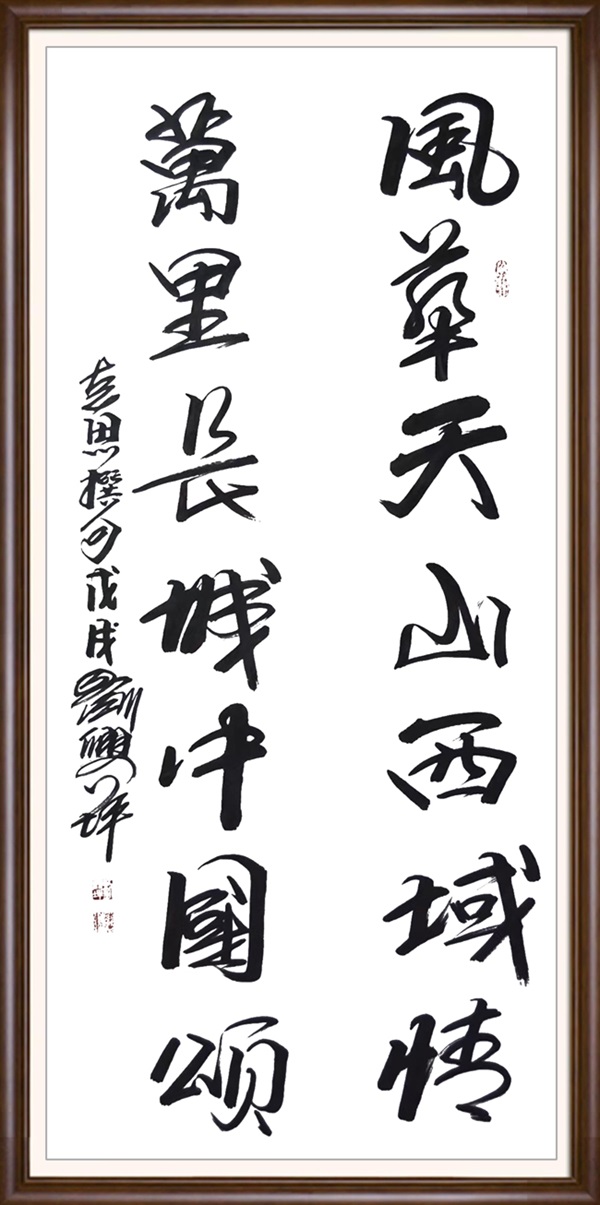 風華天山西域情
萬里長城中國頌
左思撰句戊戌劉興祥